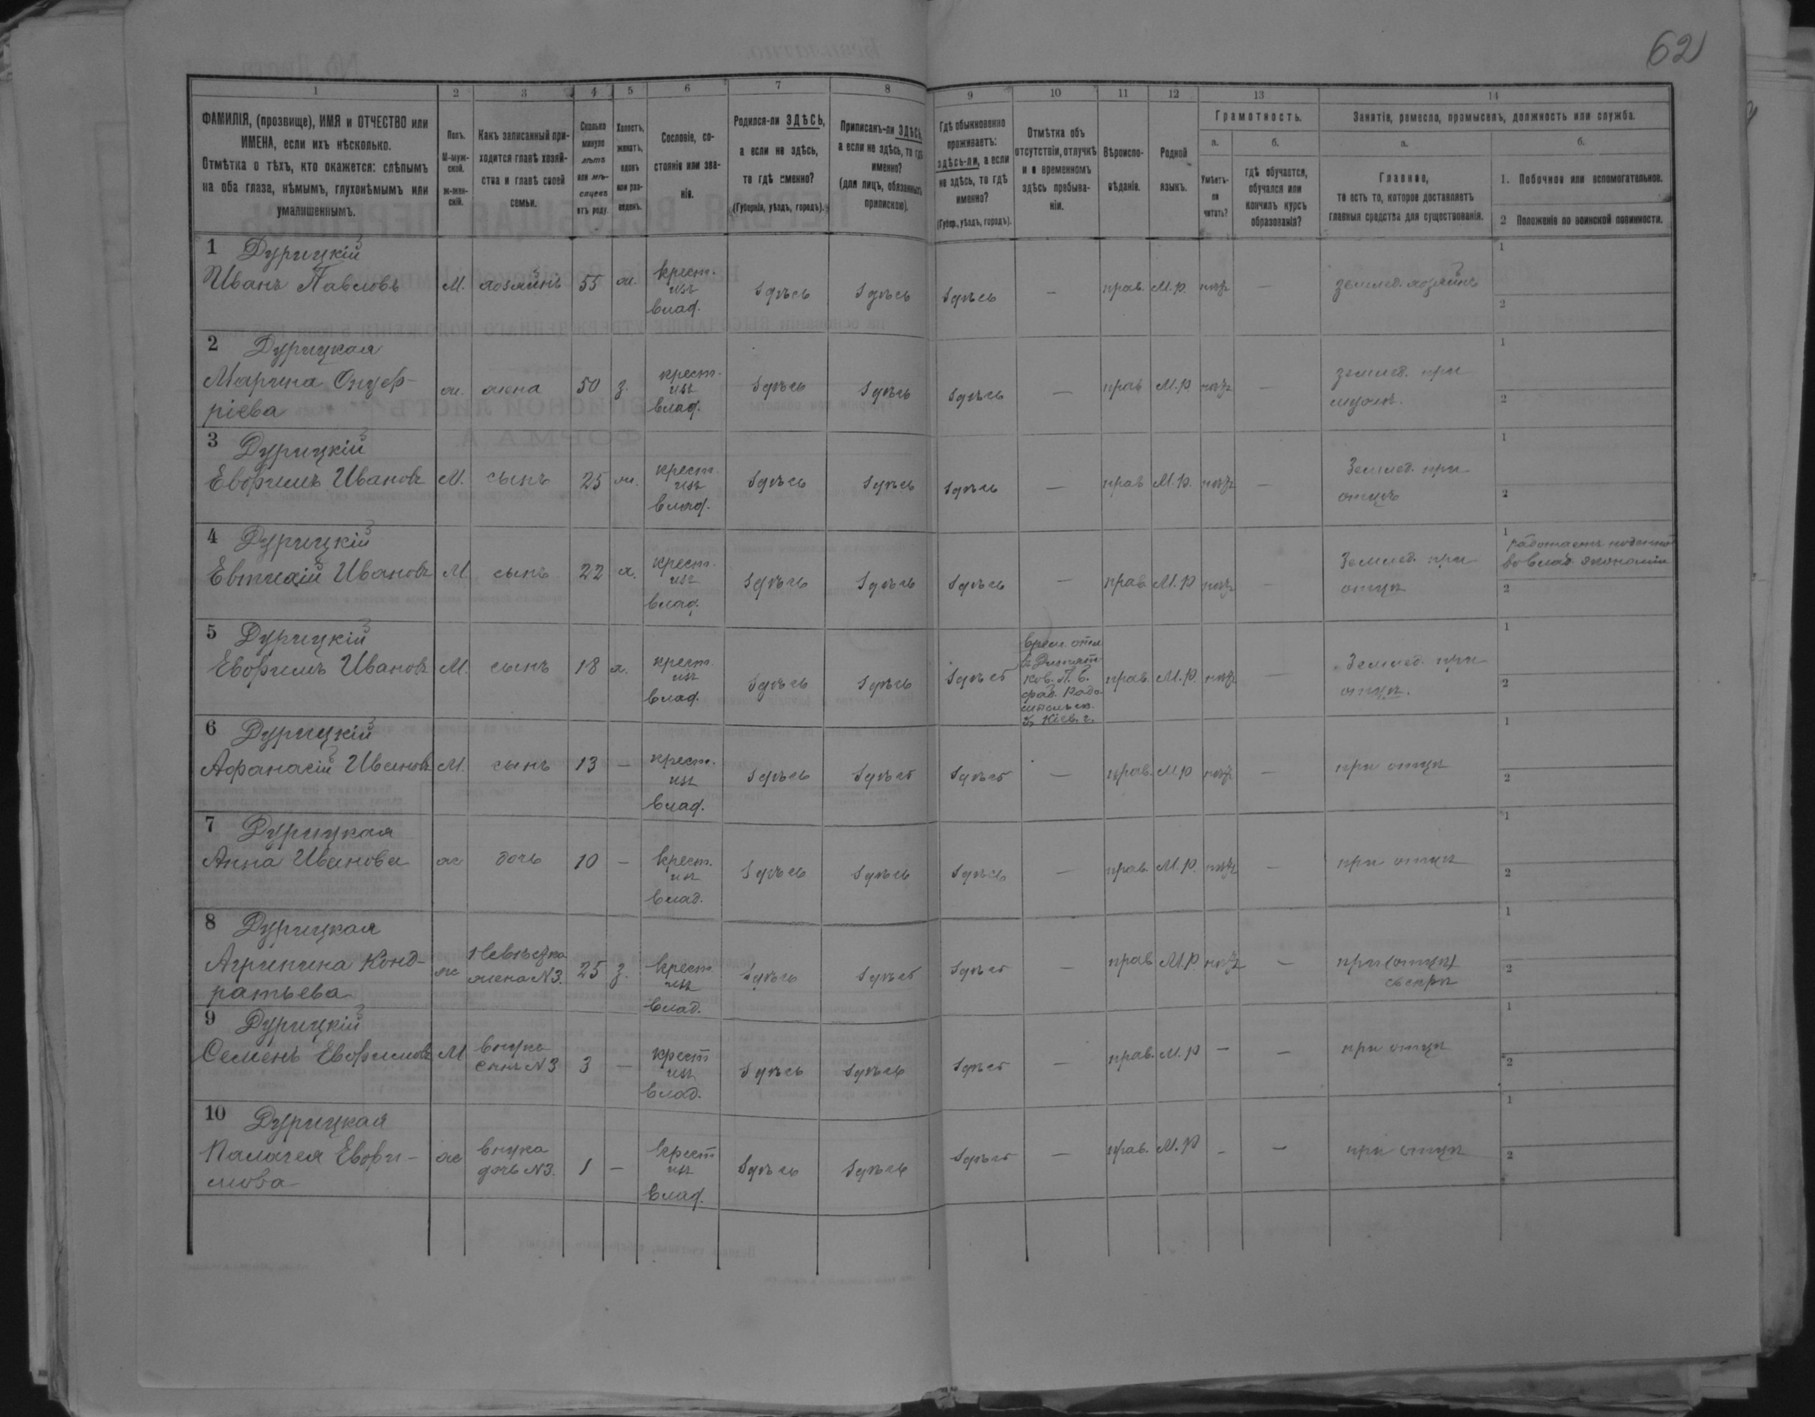 62
1 2 3 4 5 6 7 8 9 10 11 12 13 14
ФАМИЛІЯ, (прозвище), ИМЯ и ОТЧЕСТВО или
ИМЕНА, если ихъ нѣсколько.
Отмѣтка о тѣхъ, кто окажется: слѣпымъ
на оба глаза, нѣмымъ, глухонѣмымъ или
умалишеннымъ.
Полъ.
М-муж-
ской.
Ж-жен-
скій.
Какъ записанный при-
ходится главѣ хозяй-
ства и главѣ своей
семьи.
Сколько
минуло
лѣтъ
или мѣ-
сяцевъ
отъ роду.
Холостъ,
женатъ,
вдовъ
или раз-
веденъ.
Сословіе, со-
стояніе или зва-
ніе.
Родился-ли ЗДѢСЬ,
а если не здѣсь,
то гдѣ именно?
(Губернія, уѣздъ, городъ).
Приписанъ-ли ЗДѢСЬ,
а если не здѣсь, то гдѣ
именно?
(для лицъ, обязанныхъ
припискою).
Гдѣ обыкновенно
проживаетъ:
здѣсь-ли, а если
не здѣсь, то гдѣ
именно?
(Губер., уѣздъ, городъ).
Отмѣтка объ
отсутствіи, отлучкѣ
и о временномъ
здѣсь пребыва-
ніи.
Вѣроиспо-
вѣданіе.
Родной
языкъ.
Грамотность.
а.
Умѣетъ-
ли
читать?
б.
гдѣ обучается,
обучался или
кончилъ курсъ
образованія?
Занятіе, ремесло, промыселъ, должность или служба.
а.
Главное,
то есть то, которое доставляетъ
главныя средства для существованія.
б.
1. Побочное или вспомогательное.
2 Положеніе по воинской повинности.
1 Дурицкій
Иванъ Павловъ М. хозяинъ 55 ж. крест. изъ влад. здѣсь здѣсь здѣсь — прав. М.р. нѣтъ — землед. хозяинъ
1
2
2 Дурицкая
Марина Онуф-
ріева ж. жена 50 з. крест. изъ влад. здѣсь здѣсь здѣсь — прав М.р нѣтъ — землед. при
мужѣ.
1
2
3 Дурицкій
Евфимъ Ивановъ М. сынъ 25 ж. крест. изъ влад. здѣсь здѣсь здѣсь — прав М.р. нѣтъ — Землед. при
отцѣ
1
2
4 Дурицкій
Евтихій Ивановъ М сынъ 22 х. крест. изъ влад. здѣсь здѣсь здѣсь — прав М.р нѣтъ — Землед при
отцѣ
1 работаетъ поденно
во влад экономіи
2
5 Дурицкій
Евфимъ Ивановъ М. сынъ 18 х. крест. изъ влад. здѣсь здѣсь здѣсь
прав. М.р нѣтъ — Землед. при
отцѣ.
1
2
6 Дурицкій
Афанасій Ивановъ М. сынъ 13 — крест. изъ влад. здѣсь здѣсь здѣсь — прав. М.р нѣтъ — при отцѣ
1
2
7 Дурицкая
Анна Иванова ж дочь 10 — крест. изъ влад. здѣсь здѣсь здѣсь — прав. М.р. нѣтъ — при отцѣ
1
2
8 Дурицкая
Агрипина Конд-
ратьева ж Невѣстка
жена N3. 25 з. крест изъ влад. здѣсь здѣсь здѣсь — прав М.р нѣтъ — при (отцѣ)
свекрѣ
1
2
9 Дурицкій
Семенъ Евфимовъ М внукъ
сынъ N3 3 — крест изъ влад. здѣсь здѣсь здѣсь — прав. М.р — — при отцѣ
1
2
10 Дурицкая
Палагея Евфи-
мова ж внука
дочь N3. 1 — крест изъ влад. здѣсь здѣсь здѣсь — прав. М.р - — при отцѣ
1
2